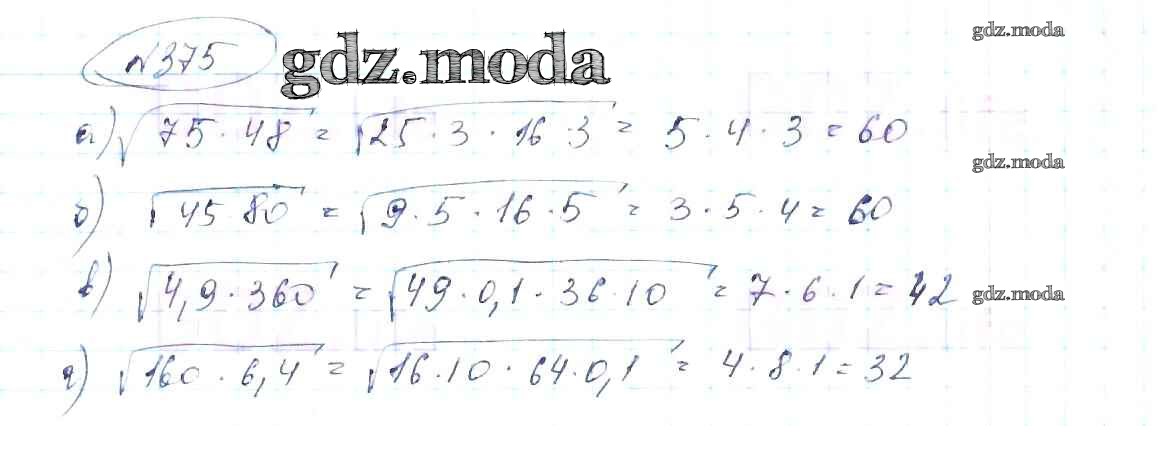 №375 gdz.moda
gdz.moda
а) √75·48 = √25·3·16·3 = 5·4·3 = 60
gdz.moda
б) √45·80 = √9·5·16·5 = 3·5·4 = 60
в) √4,9·360 = √49·0,1·36·10 = 7·6·1 = 42
gdz.moda
г) √160·6,4 = √16·10·64·0,1 = 4·8·1 = 32
gdz.moda